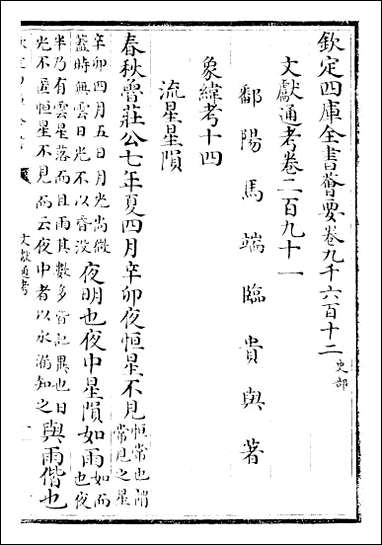 欽定四庫全書薈要卷九千六百十二 史部
文獻通考卷二百九十一
鄱陽馬端臨貴與著
象緯考十四
流星星隕
春秋魯莊公七年夏四月辛卯夜恒星不見恒常也謂常見之星
辛卯四月五日月光尚微蓋時無雲日光不以昏沒夜明也夜中星隕如雨如而也夜
半乃有雲星落而且雨其數多皆記異也日光不匿恒星不見而云夜中者以水漏知之與雨偕也
文獻通考